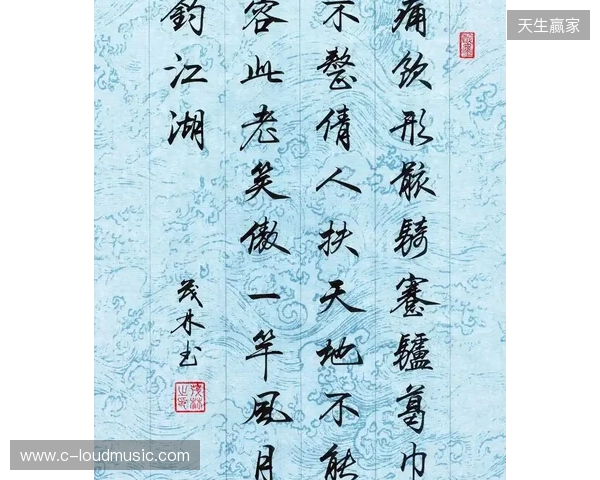 天生赢家
痛飲形骸騎蹇驢葛巾
不整倩人扶天地不能
容此老笑傲一竿風月
釣江湖
茂林书
www.c-loudmusic.com